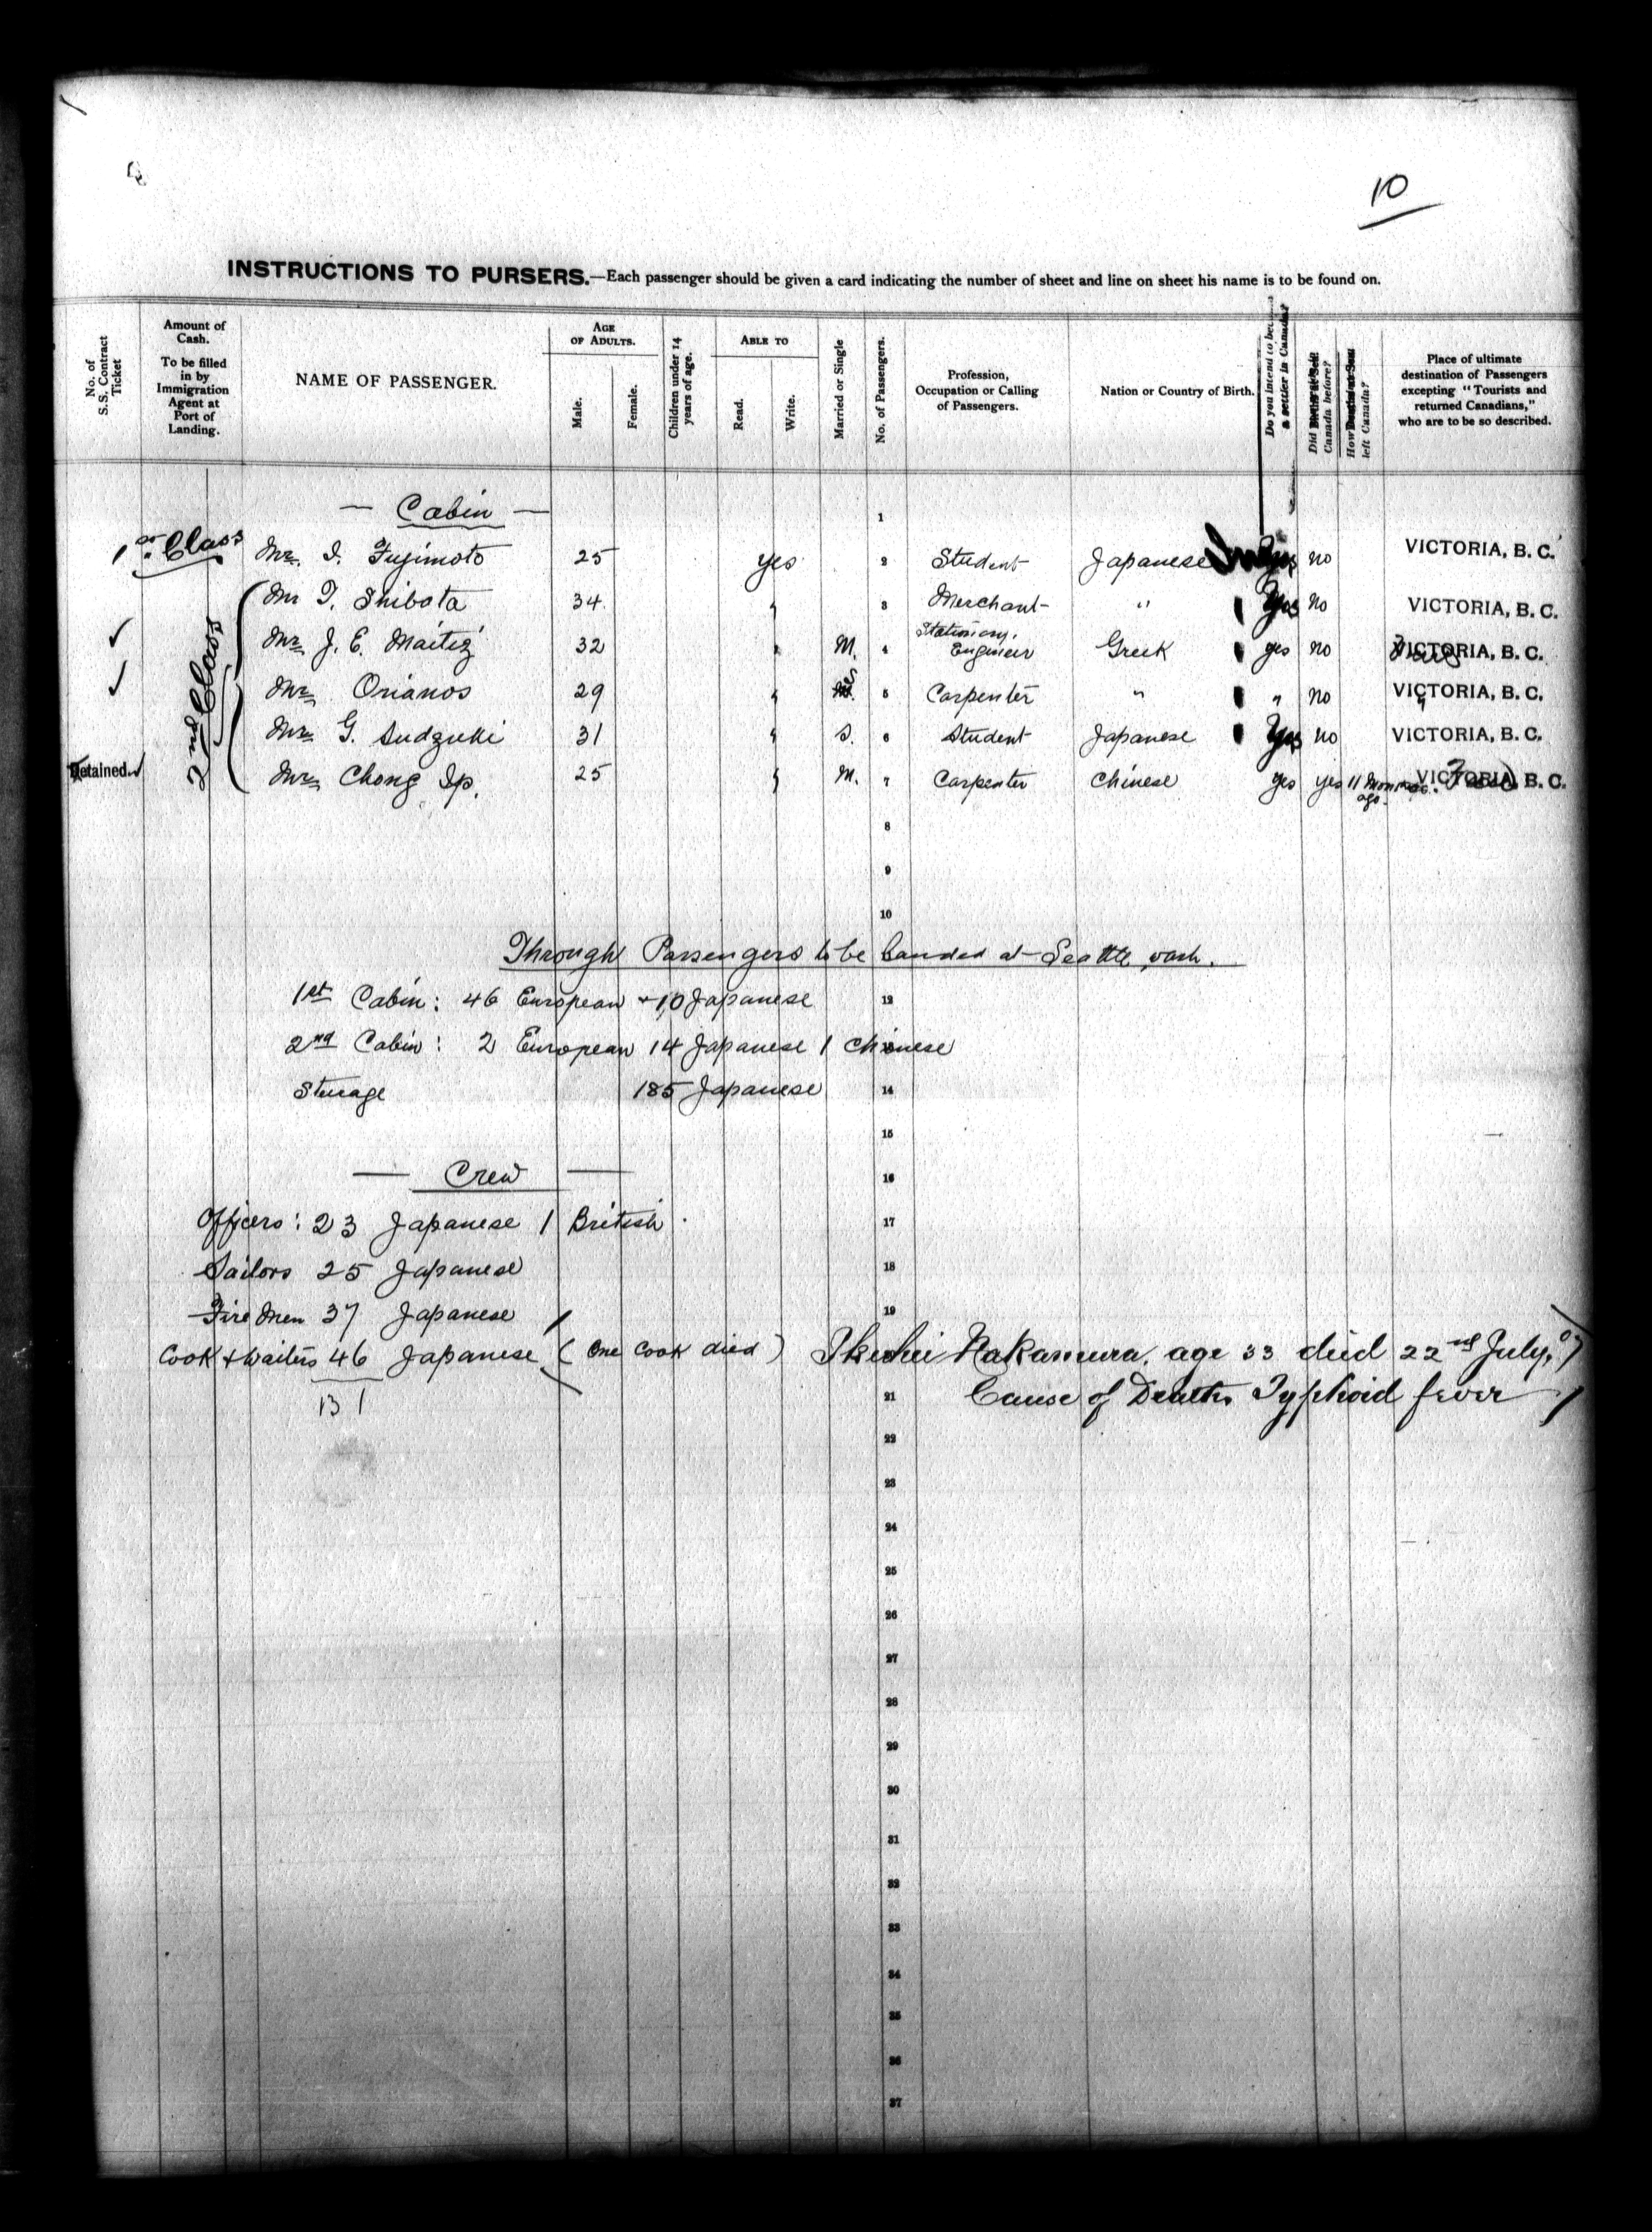 10
INSTRUCTIONS TO PURSERS.—Each passenger should be given a card indicating the number of sheet and line on sheet his name is to be found on.
No. of S.S. Contract Ticket
Amount of Cash. To be filled in by Immigration Agent at Port of Landing.
NAME OF PASSENGER.
AGE OF ADULTS.
Male.
Female.
Children under 14 years of age.
ABLE TO
Read.
Write.
Married or Single
No. of Passengers.
Profession, Occupation or Calling of Passengers.
Nation or Country of Birth.
Do you intend to a settler in Canada?
Did Canada before?
How left Canada?
Place of ultimate destination of Passengers excepting "Tourists and returned Canadians," who are to be so described.
— Cabin — 1
1st Class Mr. I. Fujimoto 25 yes 2 Student Japanese no VICTORIA, B. C.
2nd Class
Mr T. Shibata 34. " 3 Merchant " Yes no VICTORIA, B. C.
✓ Mr. J. E. Maitiz 32 " M. 4 Stationary. Engineer Greek yes no VICTORIA, B. C.
✓ Mr. Orianos 29 " 5 Carpenter " " no VICTORIA, B. C.
Mr. G. Sudzuki 31 " S. 6 Student Japanese Yes no VICTORIA, B. C.
Detained. ✓ Mr. Chong Ip. 25 " M. 7 Carpenter Chinese yes yes 11 Months ago. VICTORIA, B. C.
8
9
10
Through Passengers to be Landed at Seattle, wash.
1st Cabin: 46 European + 10 Japanese 12
2nd Cabin: 2 European 14 Japanese 1 Chinese
Sterage 185 Japanese 14
15
— Crew — 16
Officers: 23 Japanese 1 British 17
Sailors 25 Japanese 18
Fire Men 37 Japanese 19
Cook + Waiters 46 Japanese (One Cook died) Nakamura, age 33 died 22nd July, 07
131 21 Cause of Death Typhoid fever
22
23
24
25
26
27
28
29
30
31
32
33
34
35
36
37